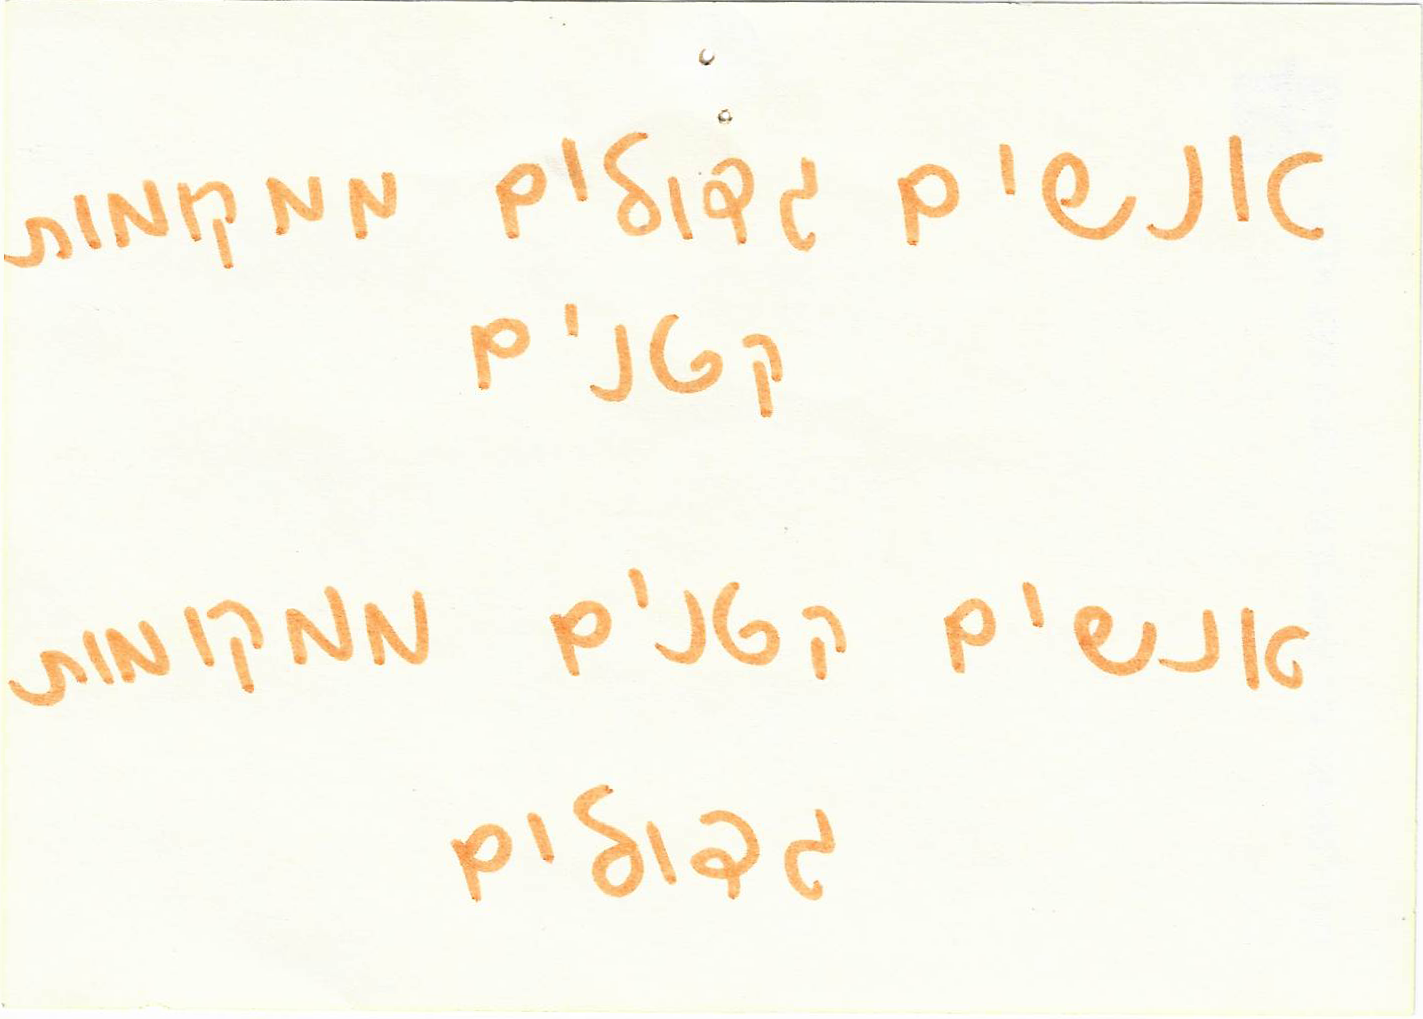 אנשים גדולים ממקומות
קטנים
אנשים קטנים ממקומות
גדולים